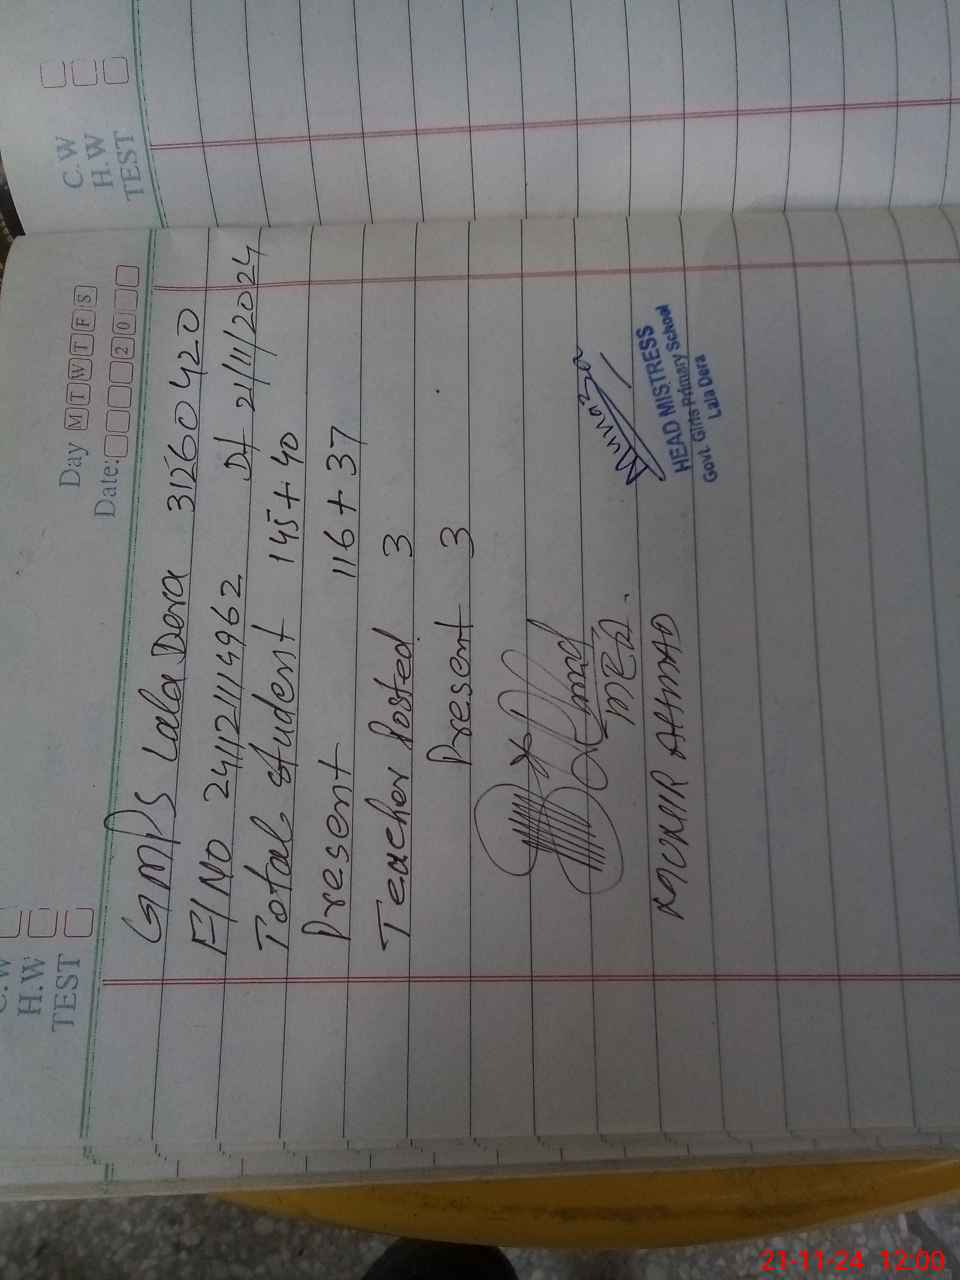 C.W
H.W
TEST
Day M T W T F S
Date: 2 0
C.W
H.W
TEST
GMPS Lala Dera 31260420
F/NO 241121114962 Dt 21/11/2024
Total student 145+40
Present 116+37
Teacher Posted 3
Present 3
MEA.
MUNIR AHMAD
HEAD MISTRESS
Govt. Girls Primary School
Lala Dera
21-11-24 12:00